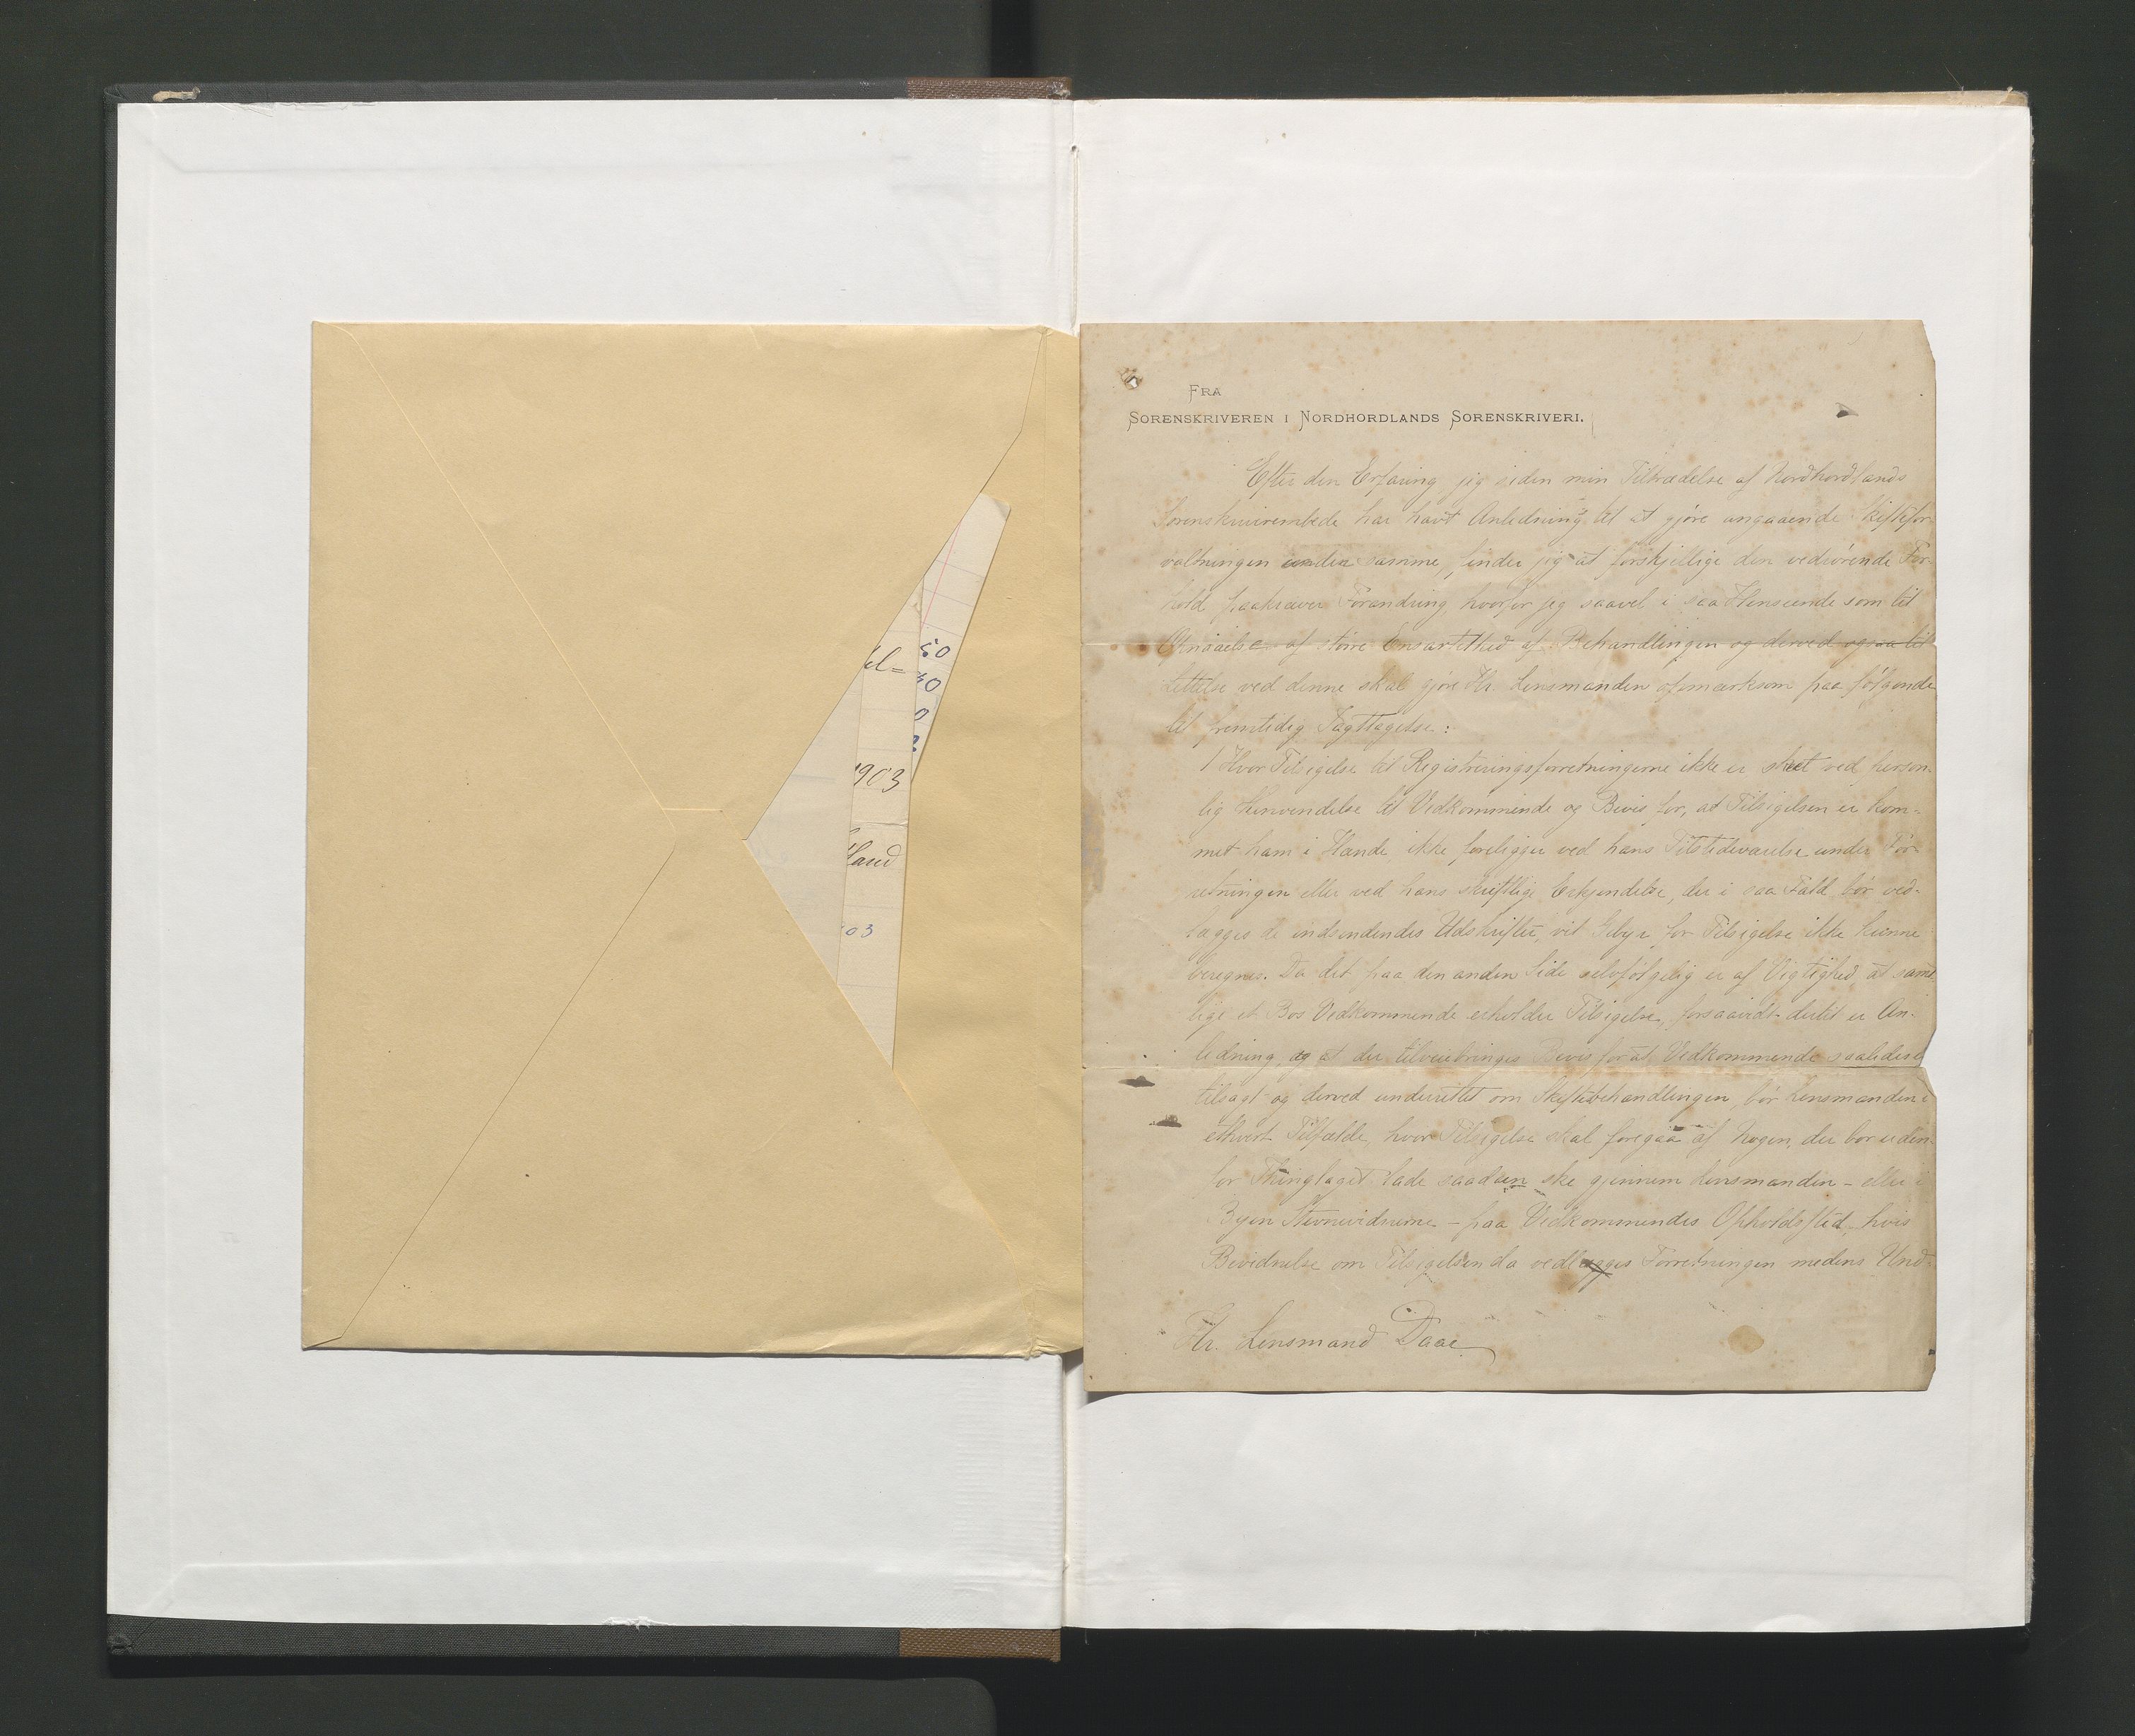 50
el=
40
0
1903
land
03
FRA
SORENSKRIVEREN I NORDHORDLANDS SORENSKRIVERI.
Efter den Erfaring jeg siden min Tiltrædelse af Nordhordlands
Sorenskriverembede har havt Anledning til at gjøre angaaende Skiftefor-
valtningen under samme, finder jeg at forskjellige den vedrørende For-
hold paakræver Forandring, hvorfor jeg saavel i saa Henseende som til
Opnaaelse af større Ensartethed af Behandlingen og derved ogsaa til
Lettelse ved denne skal gjøre Hr. Lensmanden opmærksom paa følgende
til fremtidig Iagttagelse:
1 Hvor Tilsigelse til Registreringsforretningerne ikke er skeet ved person-
lig Henvendelse til Vedkommende og Bevis for, at Tilsigelsen er kom-
met ham i Hænde ikke foreligger ved hans Tilstedeværelse under For-
retningen eller ved hans skriftlige Erkjendelse, der i saa Fald bør ved-
lægges de indsendendes Udskrifter, vil Gebyr for Tilsigelse ikke kunne
beregnes. Da det paa den anden Side selvfølgelig er af Vigtighed, at samt-
lige et Bos Vedkommende erholder Tilsigelse, forsaavidt dertil er An-
ledning, og at der tilveiebringes Bevis for at Vedkommende saaledes er
tilsagt og derved underrettet om Skiftebehandlingen, bør Lensmanden i
ethvert Tilfælde, hvor Tilsigelse skal foregaa af Nogen, der bor uden-
for Thinglaget lade saadan ske gjennem Lensmanden – eller i
Byen Stevnevidnerne – paa Vedkommendes Opholdssted, hvis
Bevidnelse om Tilsigelsen da vedlægges Forretningen medens Und-
Hr. Lensmand Daae